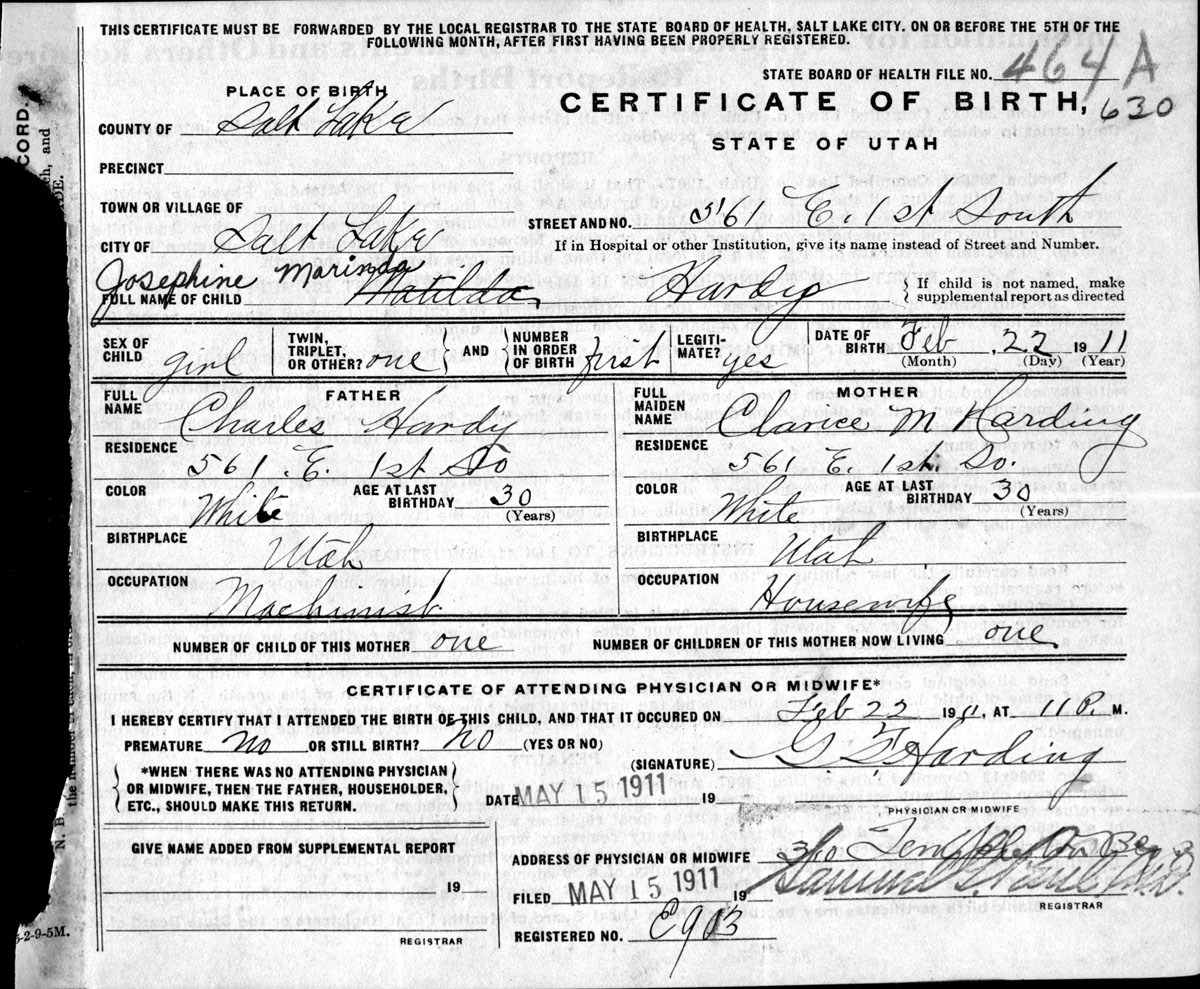 THIS CERTIFICATE MUST BE FORWARDED BY THE LOCAL REGISTRAR TO THE STATE BOARD OF HEALTH, SALT LAKE CITY. ON OR BEFORE THE 5TH OF THE
FOLLOWING MONTH, AFTER FIRST HAVING BEEN PROPERLY REGISTERED.
STATE BOARD OF HEALTH FILE NO. 464 A
PLACE OF BIRTH
CERTIFICATE OF BIRTH, 630
COUNTY OF Salt Lake
STATE OF UTAH
PRECINCT
TOWN OR VILLAGE OF
STREET AND NO. 561 E. 1st South
CITY OF Salt Lake
If in Hospital or other Institution, give its name instead of Street and Number.
Josephine Marinda
FULL NAME OF CHILD Matilda Hardy
If child is not named, make
supplemental report as directed
SEX OF CHILD girl
TWIN, TRIPLET, OR OTHER? one
AND NUMBER IN ORDER OF BIRTH first
LEGITI-MATE? yes
DATE OF BIRTH Feb 22 1911
(Month) (Day) (Year)
FATHER
FULL NAME Charles Hardy
RESIDENCE 561 E. 1st So
COLOR White AGE AT LAST BIRTHDAY 30
(Years)
BIRTHPLACE Utah
OCCUPATION Machinist
MOTHER
FULL MAIDEN NAME Clarice M Harding
RESIDENCE 561 E. 1st So.
COLOR White AGE AT LAST BIRTHDAY 30
(Years)
BIRTHPLACE Utah
OCCUPATION Housewife
NUMBER OF CHILD OF THIS MOTHER one NUMBER OF CHILDREN OF THIS MOTHER NOW LIVING one
CERTIFICATE OF ATTENDING PHYSICIAN OR MIDWIFE*
I HEREBY CERTIFY THAT I ATTENDED THE BIRTH OF THIS CHILD, AND THAT IT OCCURED ON Feb 22 1911, AT 11 P. M.
PREMATURE No OR STILL BIRTH? No (YES OR NO)
(SIGNATURE) G F Harding
*WHEN THERE WAS NO ATTENDING PHYSICIAN
OR MIDWIFE, THEN THE FATHER, HOUSEHOLDER,
ETC., SHOULD MAKE THIS RETURN.
DATE MAY 15 1911 19
PHYSICIAN OR MIDWIFE
GIVE NAME ADDED FROM SUPPLEMENTAL REPORT
19
REGISTRAR
ADDRESS OF PHYSICIAN OR MIDWIFE 360
FILED MAY 15 1911 19
Samuel
REGISTRAR
REGISTERED NO. E903
CORD.
and
ADE.
N. B.
5-2-9-5M.